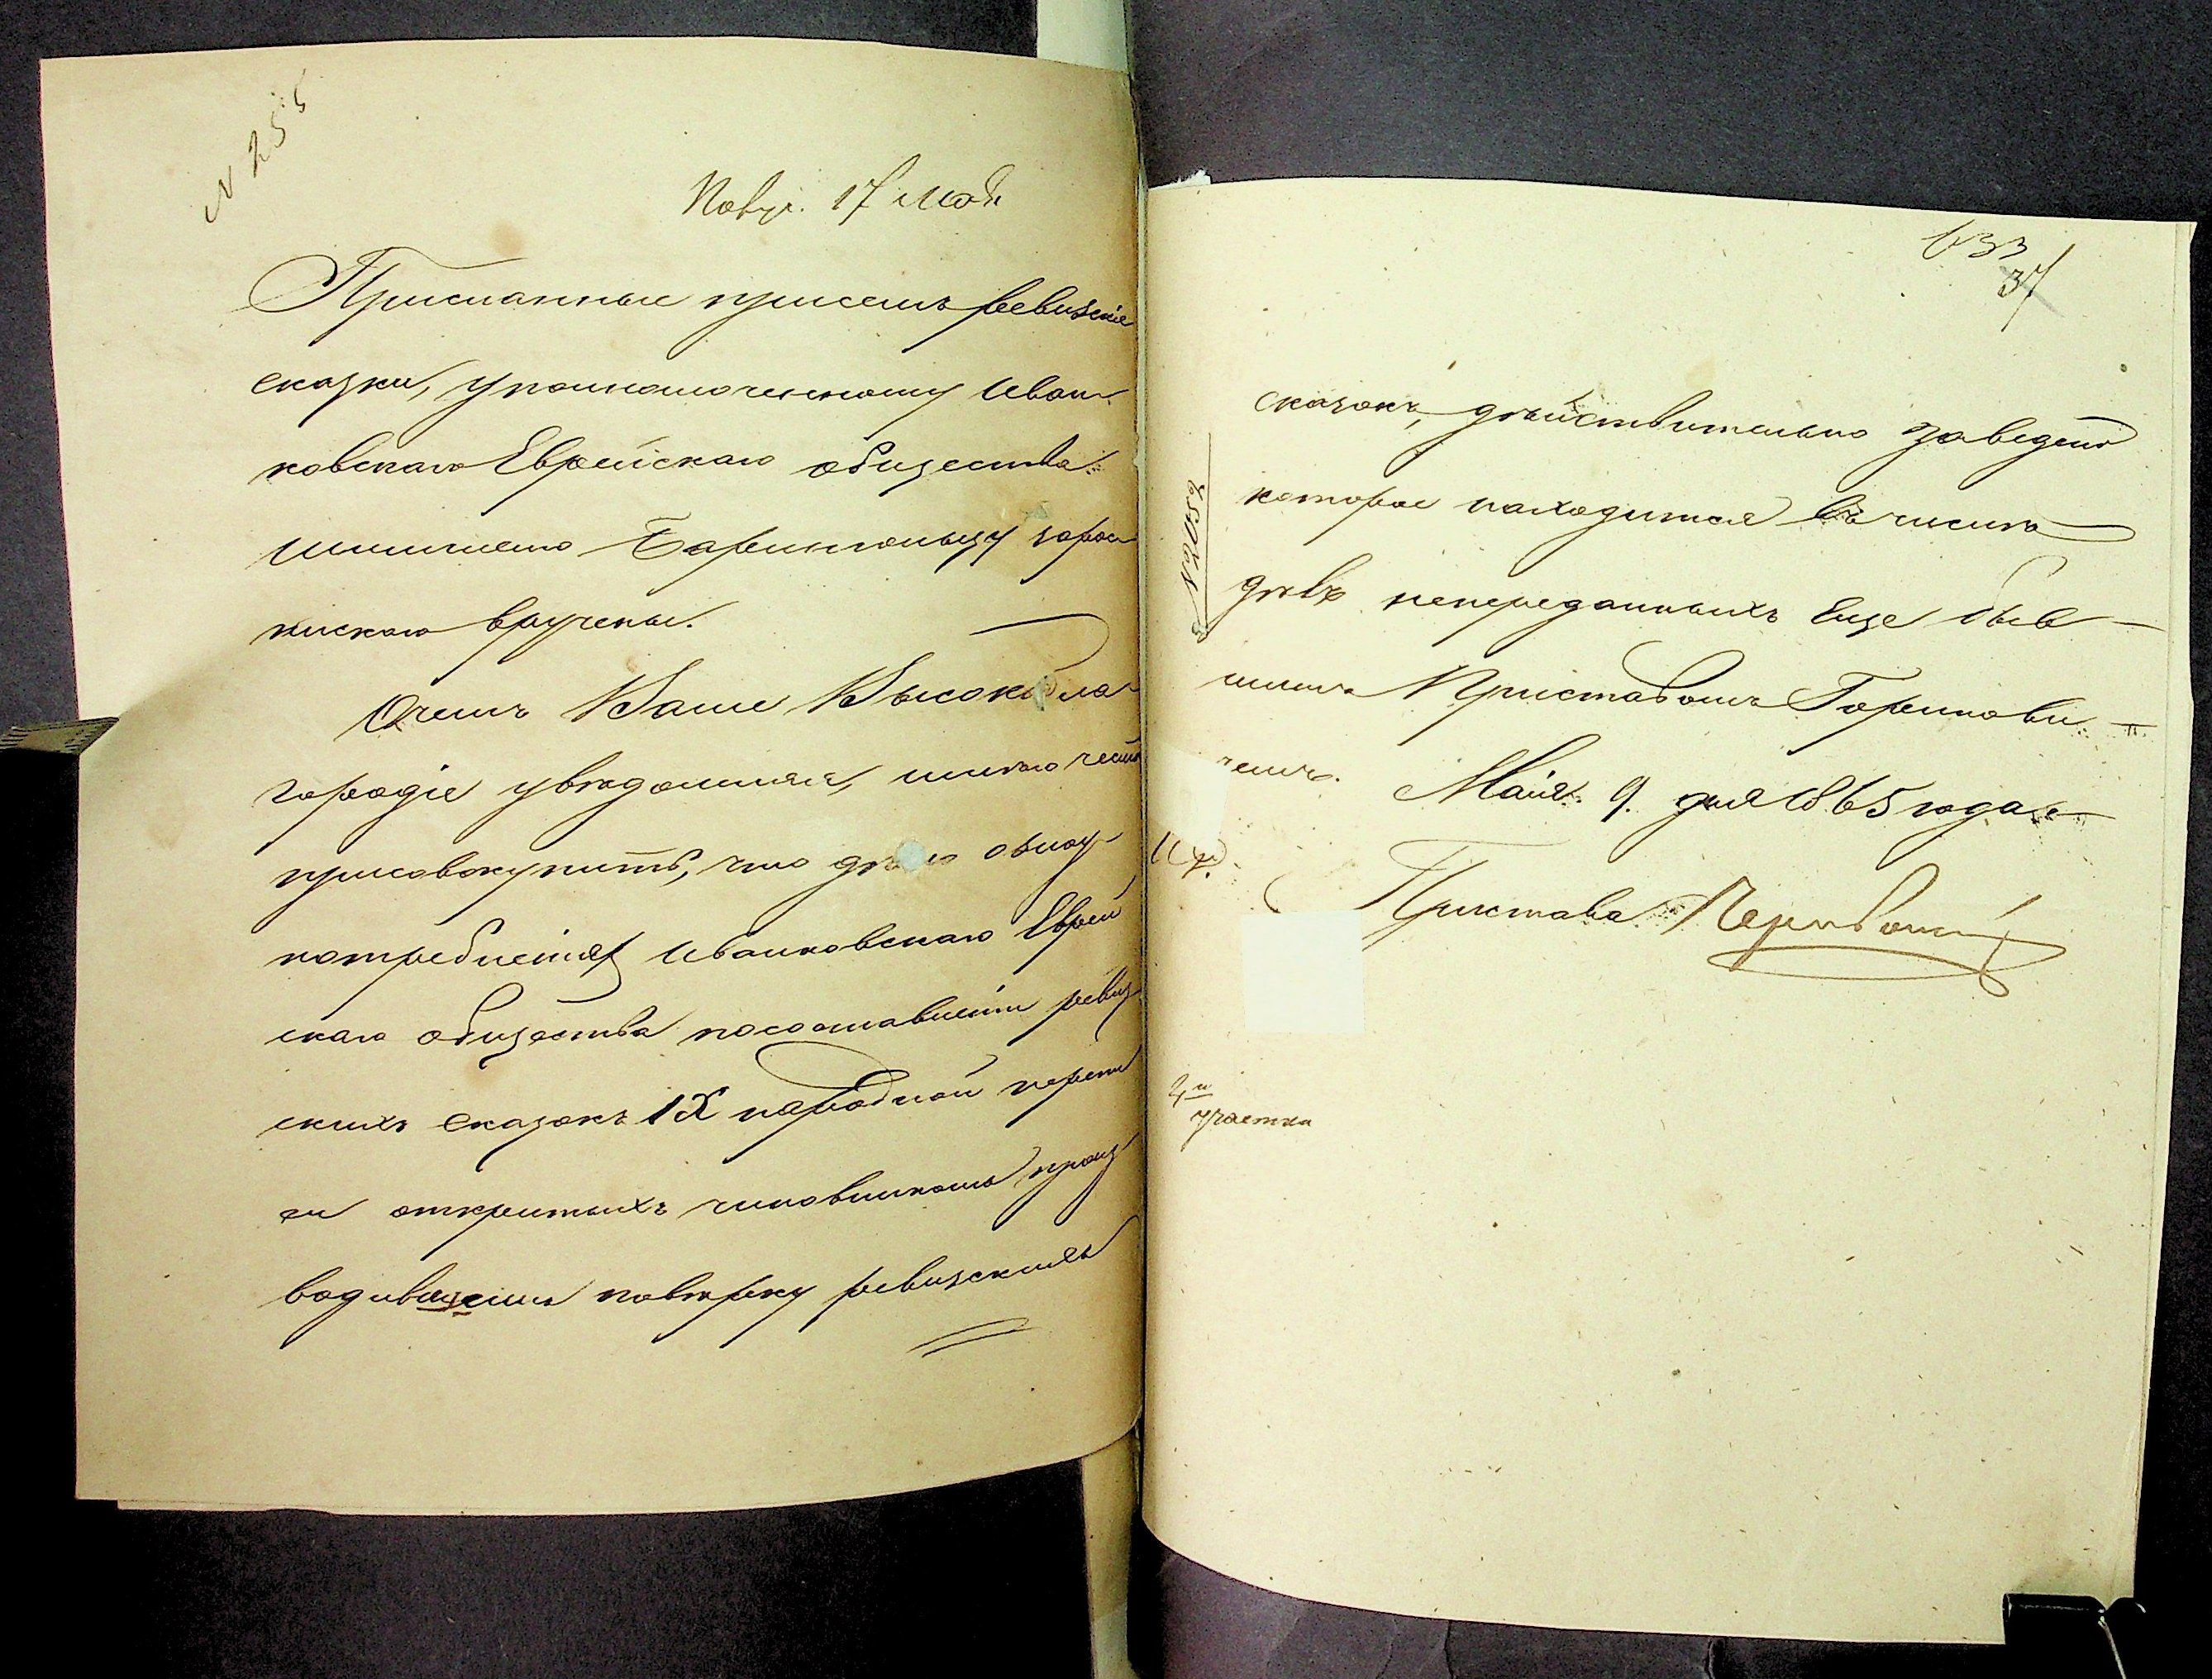 N 255
Получ. 17 мая
Присланные при семъ ревизскія
сказки, уполномоченному Иван-
ковскаго Еврейскаго общества
вручены.
О чемъ Ваше Высокобла-
городіе увѣдомляя, имѣю честь
присовокупить, что дѣло о злоу-
потребленіяхъ Иванковскаго Еврей
скаго общества по составленію ревиз
скихъ сказокъ IX народной переписи
открытыхъ чиновникомъ произ
водившемъ повѣрку ревизскихъ
633
37
сказокъ, дѣйствительно заведено
которое находится въ числѣ
дѣлъ непереданныхъ еще быв-
шимъ Приставомъ Горенови-
чемъ. Мая 9. дня 1865 года
N 2052
Пристава
2 и
участка